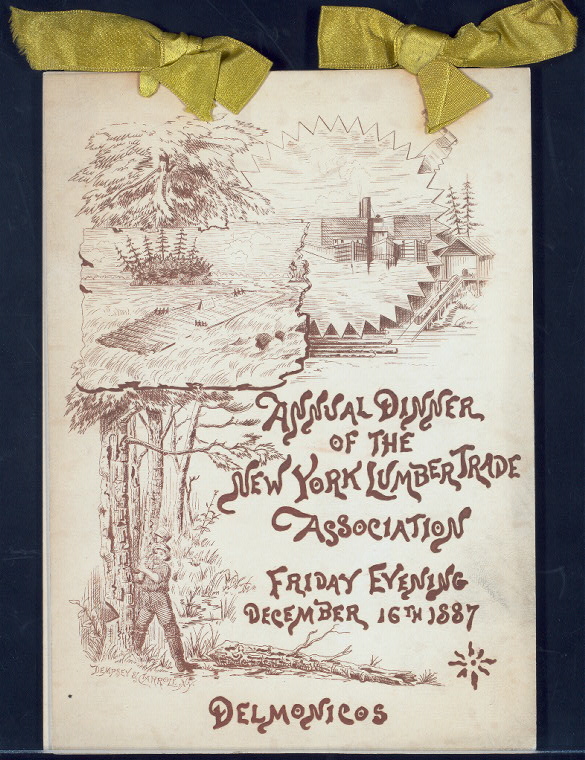 ANNUAL DINNER
OF THE
NEW YORK LUMBER TRADE
ASSOCIATION
FRIDAY EVENING
DECEMBER 16TH 1887
DEMPSEY & CARROLL, N.Y.
DELMONICOS